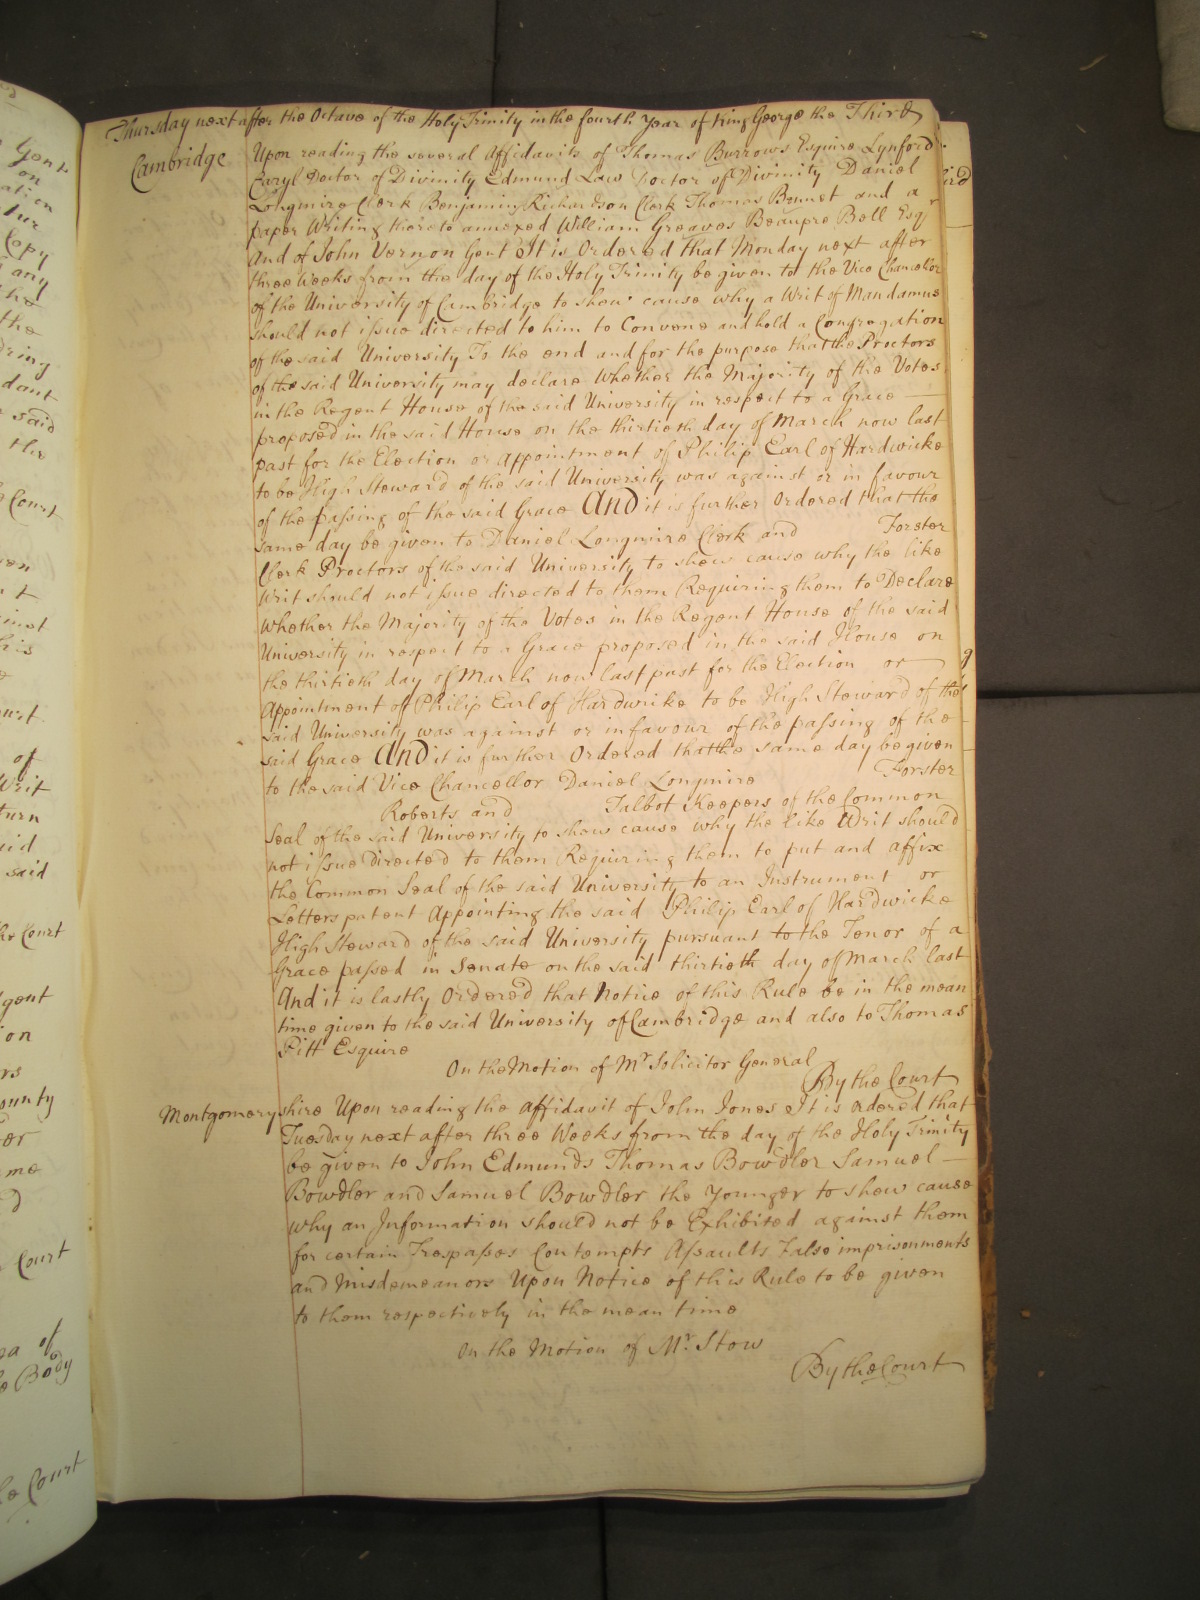 Thursday next after the Octave of the Holy Trinity in the fourth Year of King George the Third
Cambridge
Upon reading the several Affidavits of Thomas Burrows Esquire Lynford
Caryl Doctor of Divinity Edmund Law Doctor of Divinity Daniel
Longmire Clerk Benjamin Richardson Clerk Thomas Bennet and a
paper Writing thereto annexed William Greaves Beaupre Bell Esqr
And of John Vernon Gent It is Ordered that Monday next after
three Weeks from the day of the Holy Trinity be given to the Vice Chancellor
of the University of Cambridge to shew cause why a Writ of Mandamus
should not issue directed to him to Convene and hold a Congregation
of the said University To the end and for the purpose that the Proctors
of the said University may declare Whether the Majority of the Votes
in the Regent House of the said University in respect to a Grace
proposed in the said House on the thirtieth day of March now last
past for the Election or Appointment of Philip Earl of Hardwicke
to be High Steward of the said University was against or in favour
of the passing of the said Grace And it is further Ordered that the
same day be given to Daniel Longmire Clerk and Forster
Clerk Proctors of the said University to shew cause why the like
Writ should not issue directed to them Requiring them to Declare
Whether the Majority of the Votes in the Regent House of the said
University in respect to a Grace proposed in the said House on
the thirtieth day of March now last past for the Election or
Appointment of Philip Earl of Hardwicke to be High Steward of the
said University was against or in favour of the passing of the
said Grace And it is further Ordered that the same day be given
to the said Vice Chancellor Daniel Longmire Forster
Roberts and Talbot Keepers of the Common
Seal of the said University to shew cause why the like Writ should
not issue directed to them Requiring them to put and affix
the Common Seal of the said University to an Instrument or
Letters patent Appointing the said Philip Earl of Hardwicke
High Steward of the said University pursuant to the Tenor of a
Grace passed in Senate on the said thirtieth day of March last
And it is lastly Ordered that Notice of this Rule be in the mean
time given to the said University of Cambridge and also to Thomas
Pitt Esquire
On the Motion of Mr Solicitor General
By the Court
Montgomeryshire Upon reading the Affidavit of John Jones It is Ordered that
Tuesday next after three Weeks from the day of the Holy Trinity
be given to John Edmunds Thomas Bowdler Samuel
Bowdler and Samuel Bowdler the Younger to shew cause
why an Information should not be Exhibited against them
for certain Trespasses Contempts Assaults False imprisonments
and Misdemeanors Upon Notice of this Rule to be given
to them respectively in the mean time
On the Motion of Mr Stow
By the Court